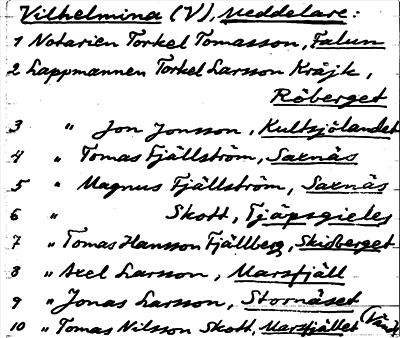 Vilhelmina (V), Meddelare:
1 Notarien Torkel Tomasson, Falun
2 Lappmannen Torkel Larsson Kråjk,
Röberget
3 " Jon Jonsson, Kultsjölandet
4 " Tomas Fjällström, Saxnäs
5 " Magnus Fjällström, Saxnäs
6 " Skott, Tjäpsgieles
7 " Tomas Hansson Fjällberg, Skidberget
8 " Axel Larsson, Marsfjäll
9 " Jonas Larsson, Stornäset
10 " Tomas Nilsson Skott, Marsfjället